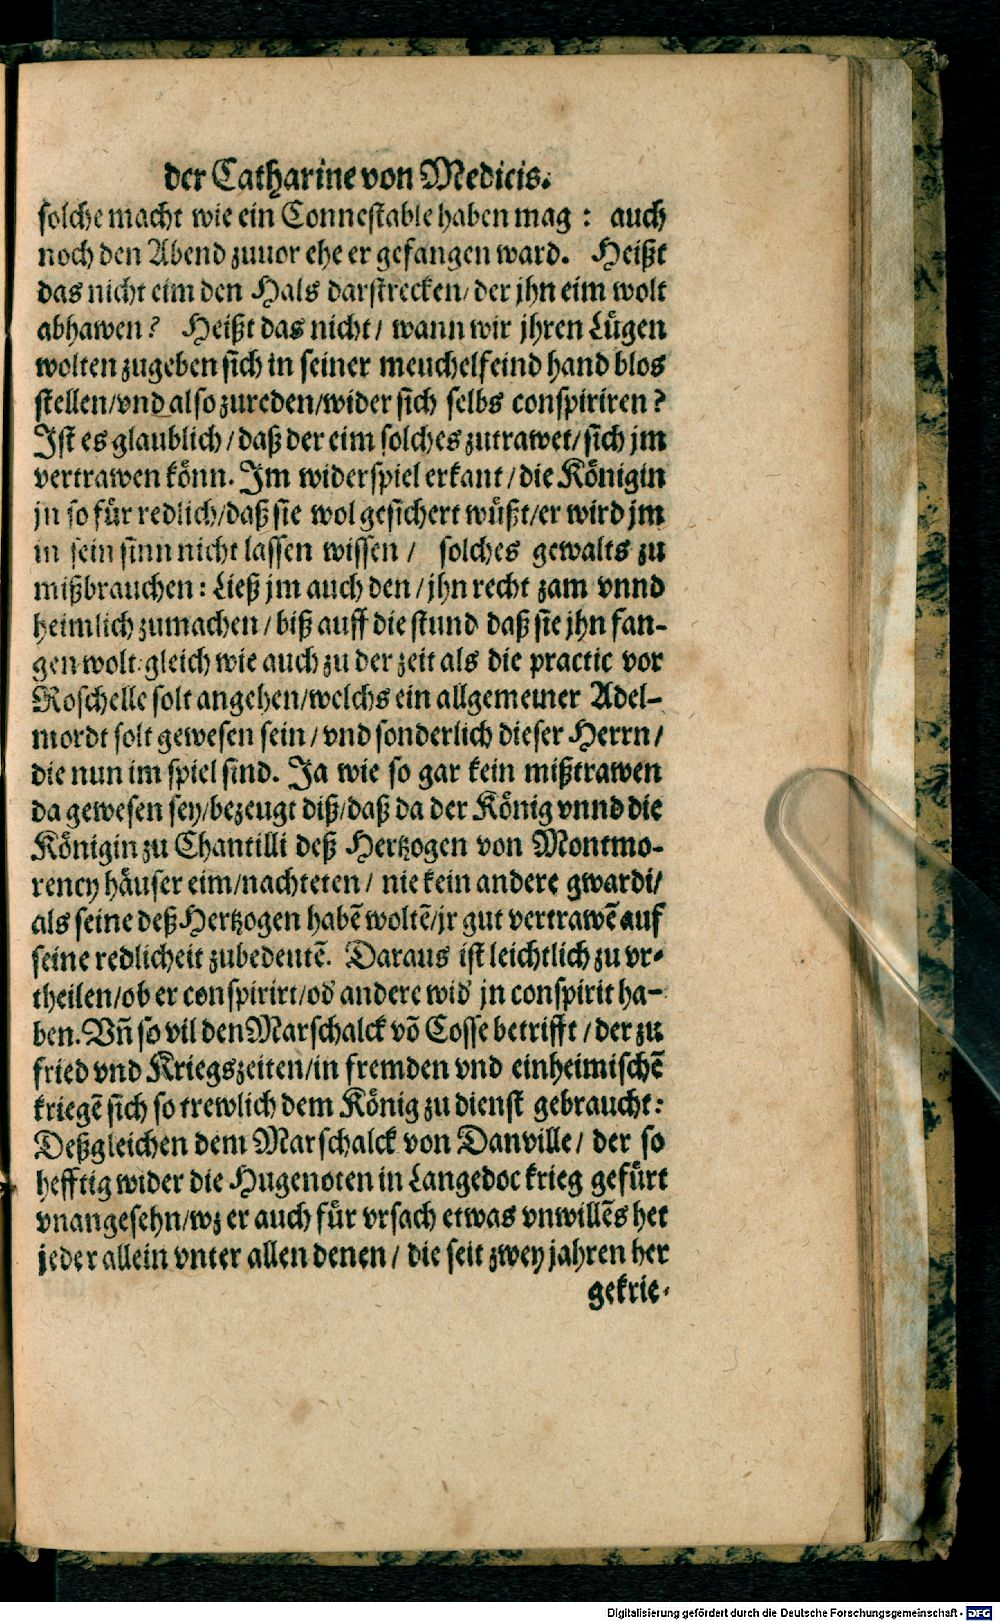 der Catharine von Medicis.
solche macht wie ein Connestable haben mag : auch
noch den Abend zuuor ehe er gefangen ward. Heißt
das nicht eim den Hals darstrecken/ der jhn eim wolt
abhawen? Heißt das nicht/ wann wir jhren Lügen
wolten zugeben sich in seiner meuchelfeind hand blos
stellen/vnd also zureden/wider sich selbs conspiriren?
Ist es glaublich/ daß der eim solches zutrawet/ sich jm
vertrawen könn. Im widerspiel erkant/ die Königin
jn so für redlich/daß sie wol gesichert wüßt/er wird jm
in sein sinn nicht lassen wissen/ solches gewalts zu
mißbrauchen: Ließ jm auch den/ jhn recht zam vnnd
heimlich zumachen/ biß auff die stund daß sie jhn fan-
gen wolt: gleich wie auch zu der zeit als die practic vor
Roschelle solt angehen/welchs ein allgemeiner Adel-
mordt solt gewesen sein/ vnd sonderlich dieser Herrn/
die nun im spiel sind. Ja wie so gar kein mißtrawen
da gewesen sey/bezeugt diß/daß da der König vnnd die
Königin zu Chantilli deß Hertzogen von Montmo-
rency häuser eim/nachteten/ nie kein andere gwardi/
als seine deß Hertzogen habẽ woltẽ/jr gut vertrawẽ auf
seine redlicheit zubedeutẽ. Daraus ist leichtlich zu vr-
theilen/ob er conspirirt/od andere wid jn conspirit ha-
ben. Vñ so vil den Marschalck võ Cosse betrifft/ der zu
fried vnd Kriegszeiten/in fremden vnd einheimischẽ
kriegẽ sich so trewlich dem König zu dienst gebraucht:
Deßgleichen dem Marschalck von Danville/ der so
hefftig wider die Hugenoten in Langedoc krieg gefürt
vnangesehn/wz er auch für vrsach etwas vnwillẽs het
jeder allein vnter allen denen/ die seit zwey jahren her
gekrie-
Digitalisierung gefördert durch die Deutsche Forschungsgemeinschaft - DFG